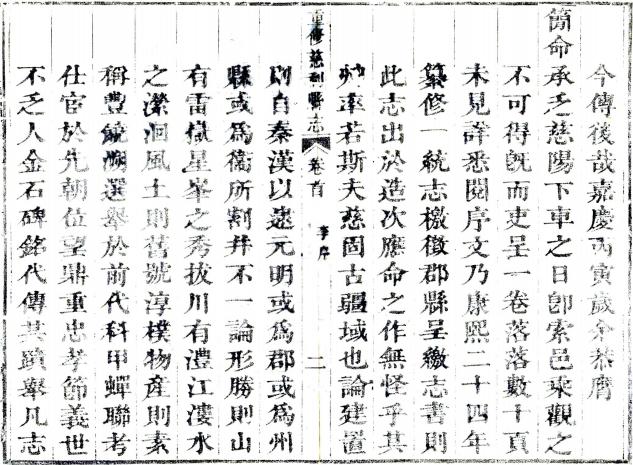 今傳後哉嘉慶丙寅歲余恭膺
簡命承乏慈陽下車之日卽索邑乘觀之
不可得旣而吏呈一卷落落數十頁
未見詳悉閱序文乃康熙二十四年
纂修一統志檄徵郡縣呈繳志書則
此志出於造次應命之作無怪乎其
草率若斯夫慈固古疆域也論建置
重修慈利縣志 卷首 李序 二
則自秦漢以逮元明或爲郡或爲州
縣或爲衞所割幷不一論形勝則山
有雷嶽星峯之秀拔川有澧江漊水
之瀠洄風土則舊號淳樸物產則素
稱豐饒溯選舉於前代科甲蟬聯考
仕宦於先朝位望鼎重忠孝節義世
不乏人金石碑銘代傳其蹟舉凡志